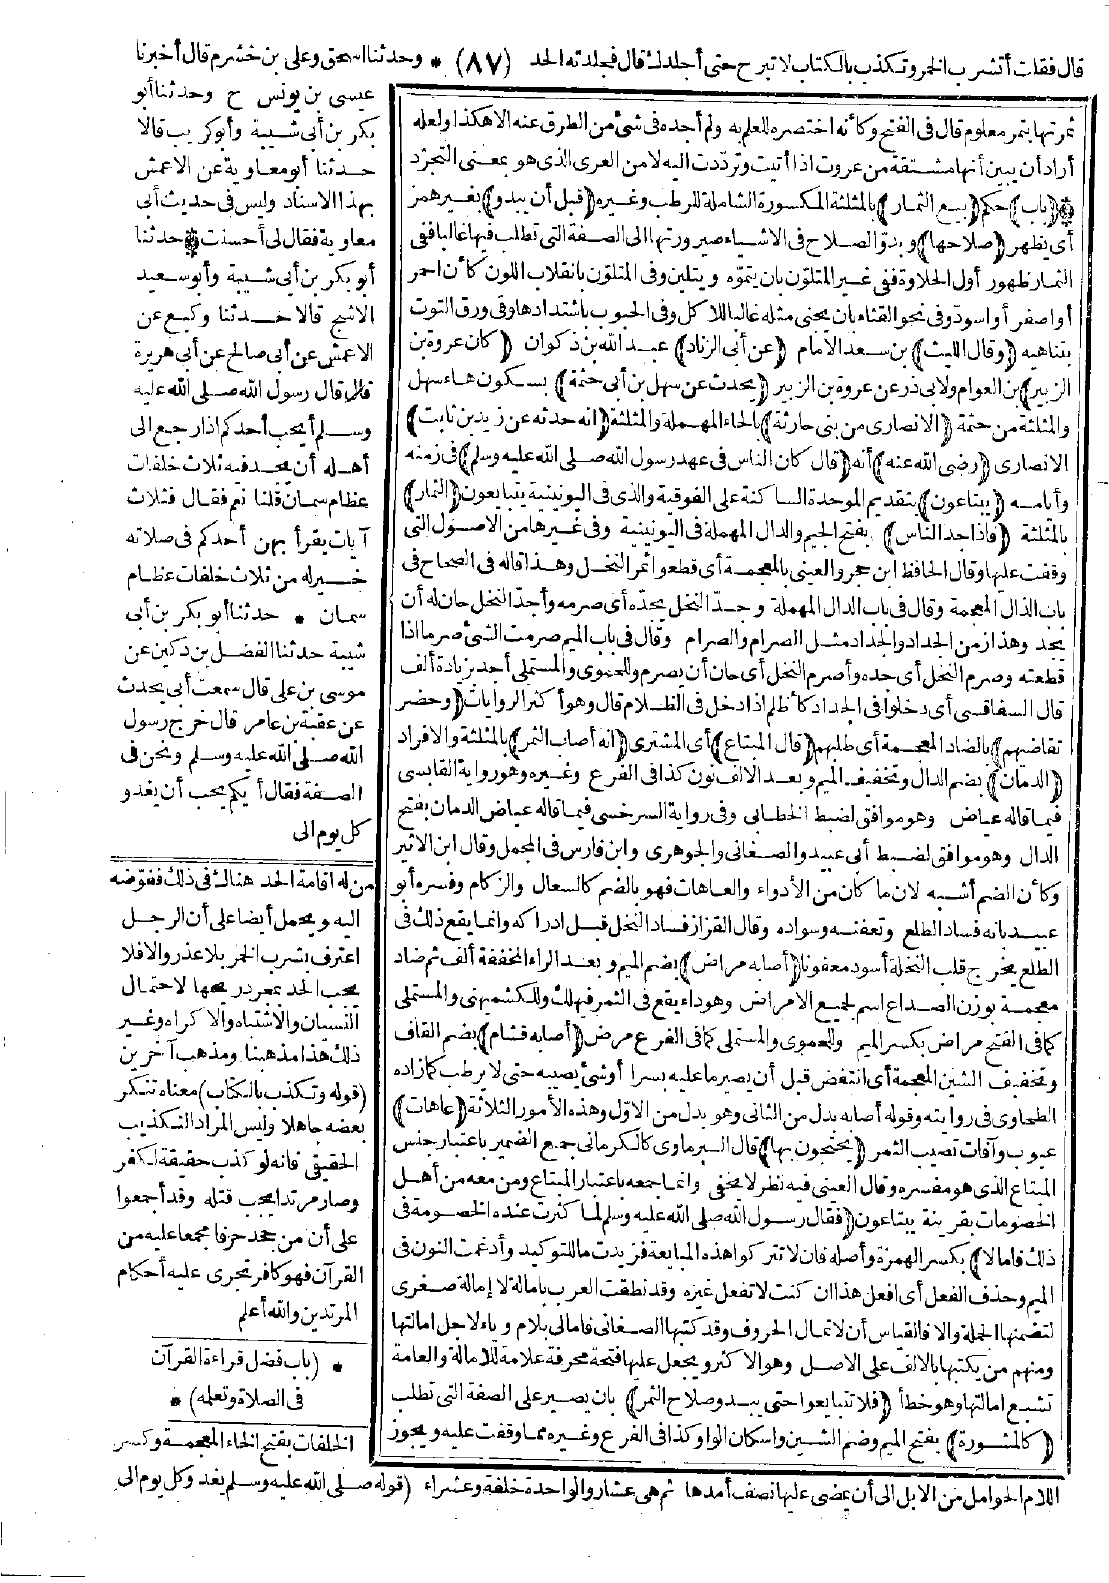 قال فقلت أتشرب الخمر وتكذب بالكتاب لا تبرح حتى أجلدك قال فجلدته الحد (٨٧) * وحدثنا اسحق وعلى بن خشرم قال أخبرنا
عيسى بن يونس ح وحدثنا أبو
بكر بن أبى شيبة وأبو كريب قالا
حدثنا أبو معاوية عن الاعمش
بهذا الاسناد وليس فى حديث أبى
معاوية فقال لى أحسنت * حدثنا
أبو بكر بن أبى شيبة وأبو سعيد
الاشج قالا حدثنا وكيع عن
الاعمش عن أبى صالح عن أبى هريرة
قال قال رسول الله صلى الله عليه
وسلم أيحب أحدكم اذا رجع الى
أهله أن يجد فيه ثلاث خلفات
عظام سمان قلنا نعم فقال فثلاث
آيات يقرأ بهن أحدكم فى صلاته
خير له من ثلاث خلفات عظام
سمان * حدثنا أبو بكر بن أبى
شيبة حدثنا الفضل بن دكين عن
موسى بن على قال سمعت أبى يحدث
عن عقبة بن عامر قال خرج رسول
الله صلى الله عليه وسلم ونحن فى
الصفة فقال أيكم يحب أن يغدو
كل يوم الى
ثمرتها بتمر معلوم قال فى الفتح وكأنه اختصره للعلم به ولم أجده فى شئ من الطرق عنه الا هكذا ولعله
أراد أن يبين أنها مشتقة من عروت اذا أتيت وترددت اليه لا من العرى الذى هو بمعنى التجرد
* (باب) حكم (بيع الثمار) بالمثلثة المكسورة الشاملة للرطب وغيره (قبل أن يبدو) بغير همز
أى يظهر (صلاحها) وبدو الصلاح فى الاشياء صيرورتها الى الصفة التى تطلب فيها غالبا ففى
الثمار ظهور أول الحلاوة ففى غير المتلون بان يتموه ويتلين وفى المتلون بانقلاب اللون كأن احمر
أو اصفر أو اسود وفى نحو القثاء بان يجنى مثله غالبا للاكل وفى الحبوب باشتدادها وفى ورق التوت
بتناهيه (وقال الليث) بن سعد الامام (عن أبى الزناد) عبد الله بن ذكوان (كان عروة بن
الزبير) بن العوام ولابى ذر عن عروة بن الزبير (يحدث عن سهل بن أبى حثمة) بسكون هاء سهل
والمثلثة من حثمة (الانصارى من بنى حارثة) بالحاء المهملة والمثلثة (انه حدثه عن زيد بن ثابت)
الانصارى (رضى الله عنه) أنه (قال كان الناس فى عهد رسول الله صلى الله عليه وسلم) فى زمنه
وأيامه (يبتاعون) بتقديم الموحدة الساكنة على الفوقية والذى فى اليونينية يتبايعون (الثمار)
بالمثلثة (فاذا جد الناس) بفتح الجيم والدال المهملة فى اليونينية وفى غيرها من الاصول التى
وقفت عليها وقال الحافظ ابن حجر والعينى بالمعجمة أى قطعوا ثمر النخل وهذا قاله فى الصحاح فى
باب الذال المعجمة وقال فى باب الدال المهملة وجد النخل يجده أى صرمه وأجد النخل حان له أن
يجد وهذا زمن الجداد والجداد مثل الصرام والصرام وقال فى باب الميم صرمت الشئ صرما اذا
قطعته وصرم النخل أى جده وأصرم النخل أى حان أن يصرم وللحموى والمستملى أجد بزيادة ألف
قال السفاقسى أى دخلوا فى الجداد كأظلم اذا دخل فى الظلام قال وهو أكثر الروايات (وحضر
تقاضيهم) بالضاد المعجمة أى طلبهم (قال المبتاع) أى المشترى (انه أصاب الثمر) بالمثلثة والافراد
(الدمان) بضم الدال وتخفيف الميم وبعد الالف نون كذا فى الفرع وغيره وهو رواية القابسى
فيما قاله عياض وهو موافق لضبط الخطابى وفى رواية السرخسى فيما قاله عياض الدمان بفتح
الدال وهو موافق لضبط أبى عبيد والصغانى والجوهرى وابن فارس فى المجمل وقال ابن الاثير
وكأن الضم أشبه لان ما كان من الأدواء والعاهات فهو بالضم كالسعال والزكام وفسره أبو
عبيد بانه فساد الطلع وتعفنه وسواده وقال القزاز فساد النخل قبل ادراكه وانما يقع ذلك فى
الطلع يخرج قلب النخلة أسود معفونا (أصابه مراض) بضم الميم وبعد الراء المخففة ألف ثم ضاد
معجمة بوزن الصداع اسم لجميع الامراض وهو داء يقع فى الثمر فيهلك وللكشميهنى والمستملى
كما فى الفتح مراض بكسر الميم وللحموى والمستملى كما فى الفرع مرض (أصابه قشام) بضم القاف
وتخفيف الشين المعجمة أى انتفض قبل أن يصير ما عليه بسرا أو شئ يصيبه حتى لا يرطب كما زاده
الطحاوى فى روايته وقوله أصابه بدل من الثانى وهو بدل من الاول وهذه الأمور الثلاثة (عاهات)
عيوب وآفات تصيب الثمر (يحتجون بها) قال البرماوى كالكرمانى جمع الضمير باعتبار جنس
المبتاع الذى هو مفسره وقال العينى فيه نظر لا يخفى وانما جمعه باعتبار المبتاع ومن معه من أهل
الخصومات بقرينة يبتاعون (فقال رسول الله صلى الله عليه وسلم لما كثرت عنده الخصومة فى
ذلك فامالا) بكسر الهمزة وأصله فان لا تتركوا هذه المبايعة فزيدت ما للتوكيد وأدغمت النون فى
الميم وحذف الفعل أى افعل هذا ان كنت لا تفعل غيره وقد نطقت العرب بامالة لا إمالة صغرى
لتضمنها الجملة والا فالقياس أن لا تمال الحروف وقد كتبها الصغانى فامالى بلام وياء لاجل امالتها
ومنهم من يكتبها بالالف على الاصل وهو الاكثر ويجعل عليها فتحة محرفة علامة للامالة والعامة
تشبع امالتها وهو خطأ (فلا تتبايعوا حتى يبدو صلاح الثمر) بان يصير على الصفة التى تطلب
(كالمشورة) بفتح الميم وضم الشين واسكان الواو كذا فى الفرع وغيره مما وقفت عليه ويجوز
من له اقامة الحد هناك فى ذلك ففوضه
اليه ويحمل أيضا على أن الرجل
اعترف بشرب الخمر بلا عذر والا فلا
يجب الحد بمجرد ريحها لاحتمال
النسيان والاشتباه والاكراه وغير
ذلك هذا مذهبنا ومذهب آخرين
(قوله وتكذب بالكتاب) معناه تنكر
بعضه جاهلا وليس المراد التكذيب
الحقيقى فانه لو كذب حقيقة لكفر
وصار مرتدا يجب قتله وقد أجمعوا
على أن من جحد حرفا مجمعا عليه من
القرآن فهو كافر تجرى عليه أحكام
المرتدين والله أعلم
* (باب فضل قراءة القرآن
فى الصلاة وتعلمه) *
الخلفات بفتح الخاء المعجمة وكسر
اللام الحوامل من الابل الى أن يمضى عليها نصف أمدها ثم هى عشار والواحدة خلفة وعشراء (قوله صلى الله عليه وسلم يغدو كل يوم الى